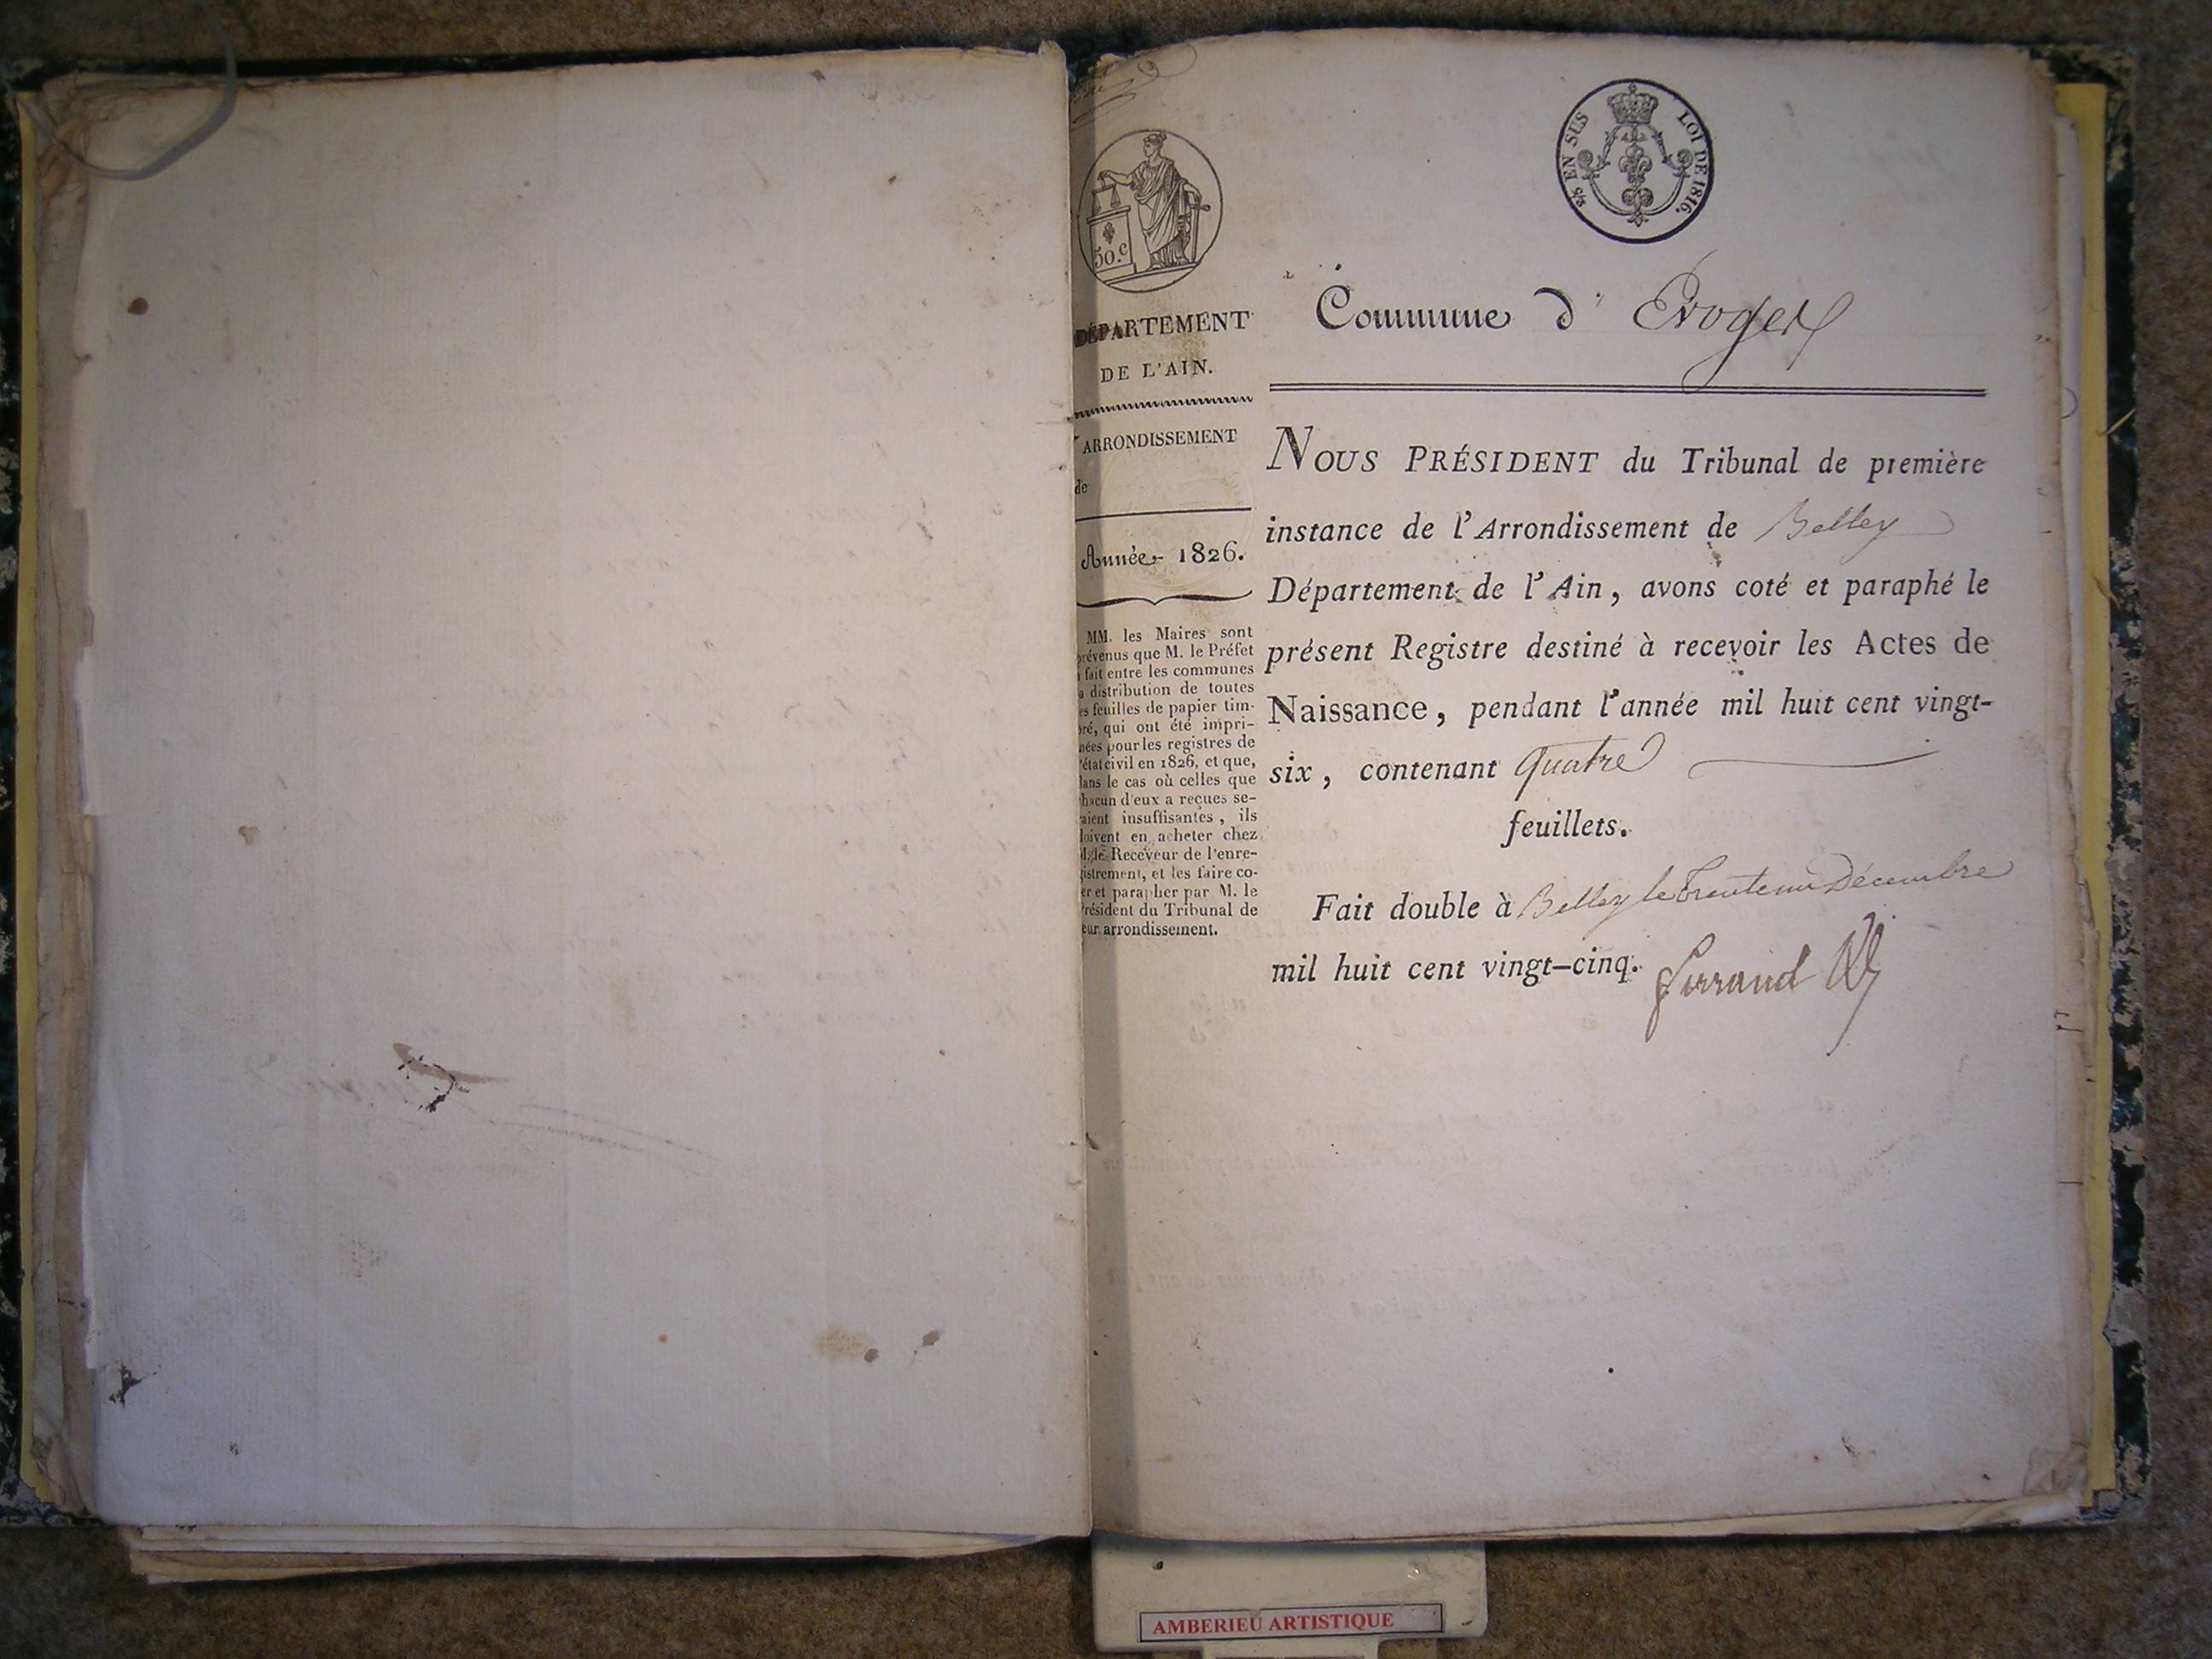 5/8 EN SUS LOI DE 1816.
50.c
DÉPARTEMENT
DE L'AIN.
ARRONDISSEMENT
de
Année 1826.
MM. les Maires sont
prévenus que M. le Préfet
a fait entre les communes
la distribution de toutes
les feuilles de papier tim-
bré, qui ont été impri-
mées pour les registres de
l'état civil en 1826, et que,
dans le cas où celles que
chacun d'eux a reçues se-
raient insuffisantes, ils
doivent en acheter chez
M. le Receveur de l'enre-
gistrement, et les faire co-
ter et parapher par M. le
Président du Tribunal de
leur arrondissement.
Commune d' Evoges
NOUS PRÉSIDENT du Tribunal de première
instance de l'Arrondissement de Belley
Département de l'Ain, avons coté et paraphé le
présent Registre destiné à recevoir les Actes de
Naissance, pendant l'année mil huit cent vingt-
six, contenant quatre
feuillets.
Fait double à Belley le trente un Décembre
mil huit cent vingt-cinq.
AMBERIEU ARTISTIQUE